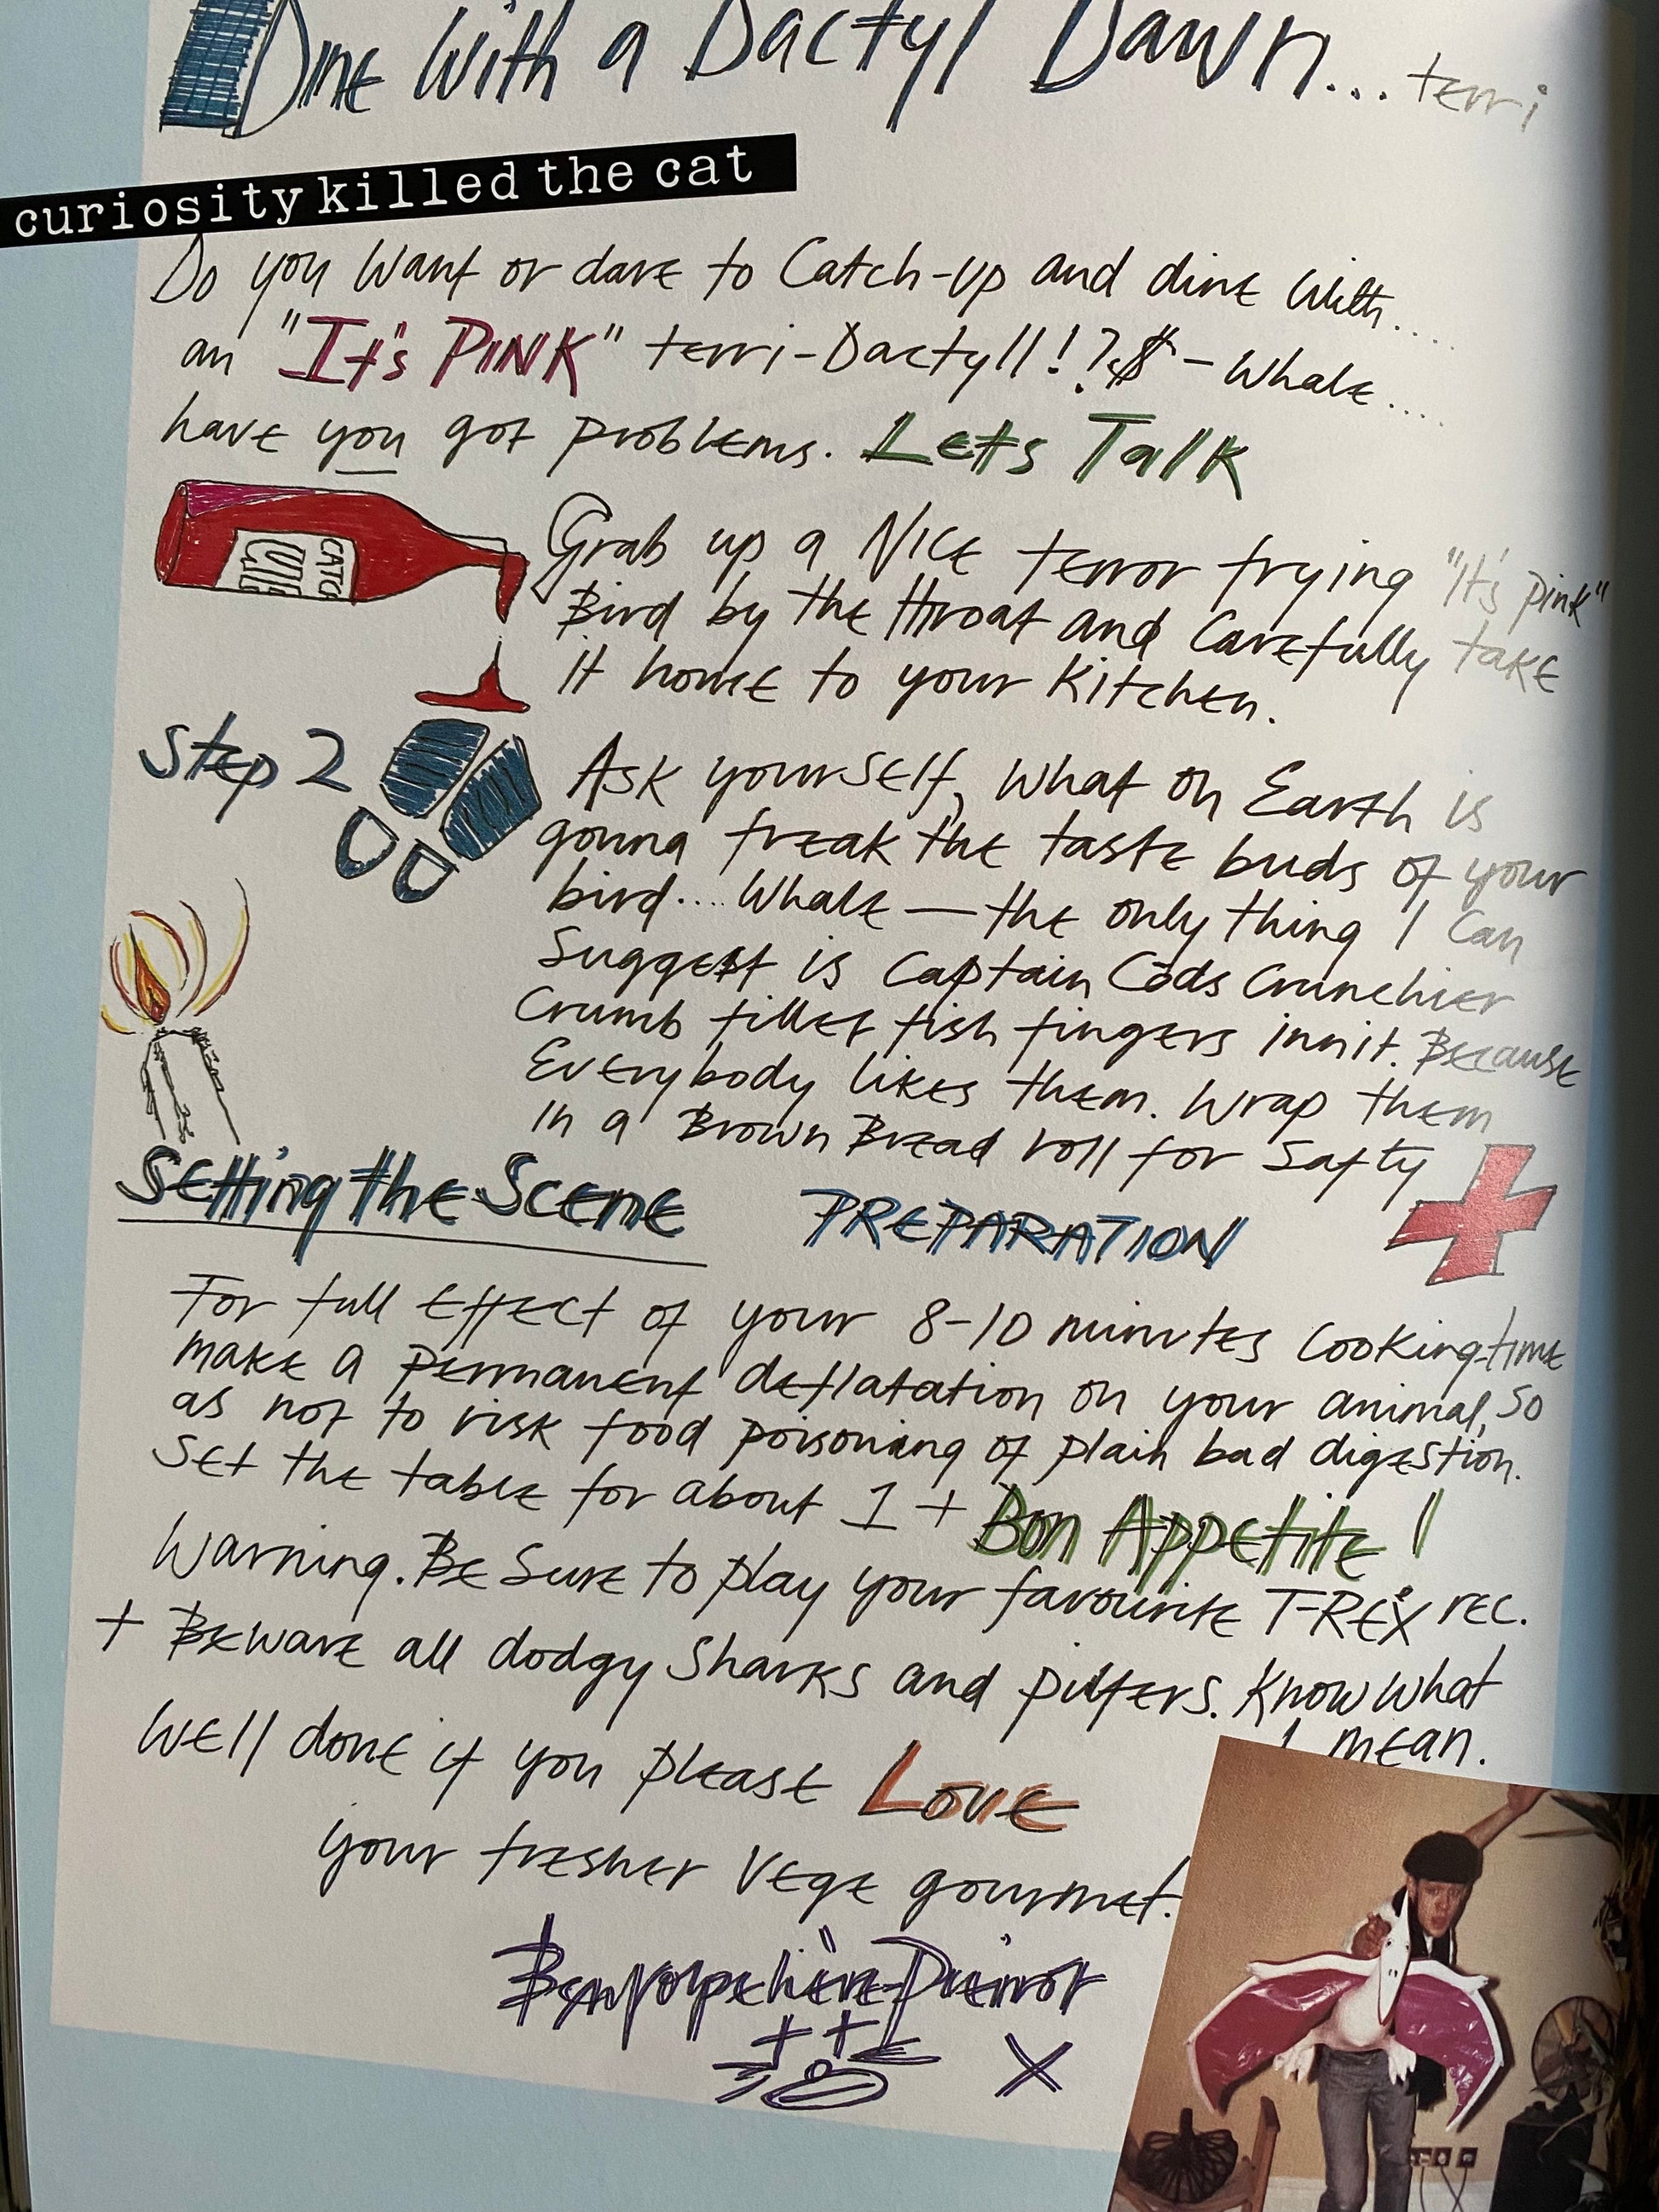 Dine With a Dactyl Dawn... terri
curiosity killed the cat
Do you Want or dare to Catch-up and dine With....
an "It's PINK" terri-Dactyll!!?$ - Whale....
have you got problems. Lets Talk
Grab up a Nice terror trying "It's pink"
Bird by the throat and Carefully take
it home to your Kitchen.
CATO
Step 2
Ask yourself, What on Earth is
gonna freak the taste buds of your
bird.... Whale — the only thing I Can
Suggest is Captain Cods Crunchier
Crumb fillet fish fingers innit. Because
Everybody likes them. Wrap them
in a Brown Bread roll for Safty
Setting the Scene PREPARATION
For full Effect of your 8-10 minutes Cooking-time
make a permanent deflatation on your animal, So
as not to risk food poisoning of plain bad digestion.
Set the table for about 1 + Bon Appetite!
Warning. Be Sure to play your favourite T-REX rec.
+ Beware all dodgy Sharks and pilfers. Know What
I mean.
Well done if you please Love
your fresher Vege gourmet.
X